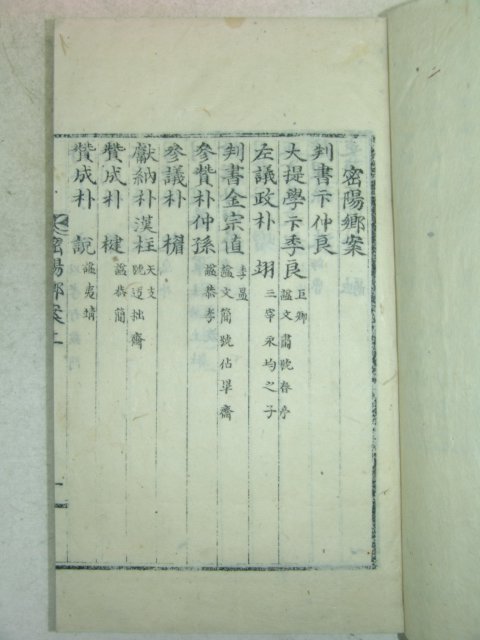 密陽鄕案
判書卞仲良
大提學卞季良 巨卿 諡文肅號春亭
左議政朴 翊 三宰永均之子
判書金宗直 季昷 諡文簡號佔畢齋
參贊朴仲孫 諡恭孝
參議朴 楷
獻納朴漢柱 天支 號迂拙齋
贊成朴 楗 諡恭簡
贊成朴 說 諡夷靖
密陽鄕案 一